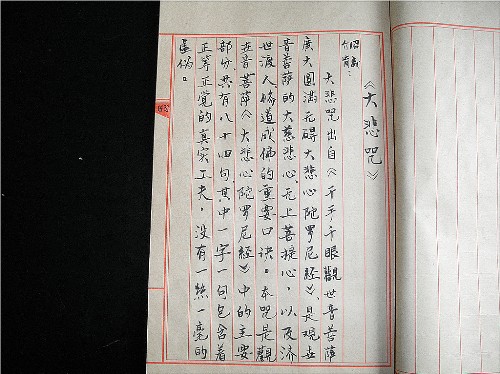 《大悲咒》
介绍
大悲咒出自《千手千眼觀世音菩萨
廣大圆满无碍大悲心陀罗尼经》，是观世
音菩萨的大慈悲心，无上菩提心，以及济
世渡人，修道成佛的重要口诀。本咒是觀
世音菩萨《大悲心陀罗尼经》中的主要
部分，共有八十四句，其中一字一句包含着
正等正觉的真实工夫，没有一丝一毫的
虚伪。